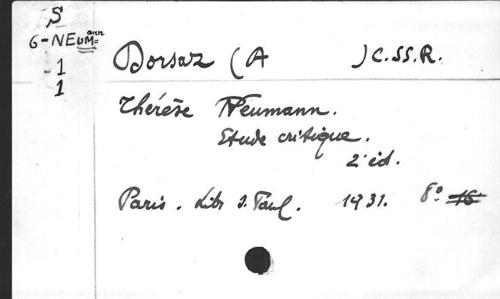 S
6-NEUMann=
1
1
Dorsaz (A ) C.SS.R.
Thérèse Neumann.
Etude critique.
2 éd.
Paris. Libr S. Paul. 1931. 8° 16